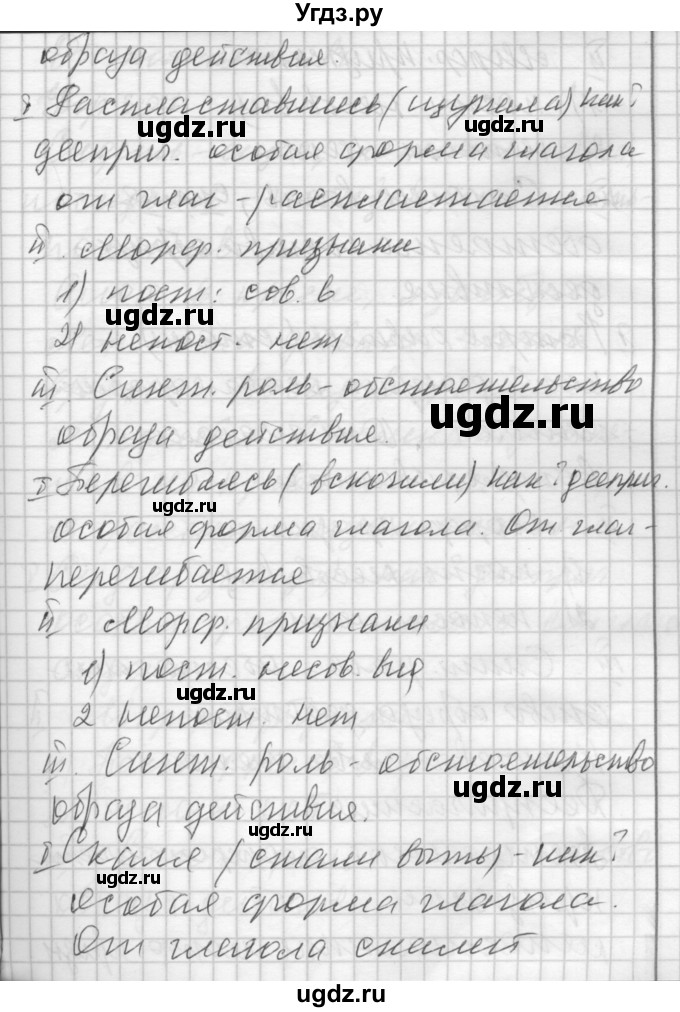 Угдз.ру
образа действия.
I Распластавшись (щурила) как?
дееприч. особая форма глагола
от глаг - распластается
II. Морф. признаки
1) пост: сов. в
2) непост. нет
III. Синт. роль - обстоятельство
образа действия.
I Перегибаясь ( вскочили) как? дееприч.
особая форма глагола. От глаг-
перегибается
II Морф. признаки
1) пост. несов. вид
2 непост. нет
III. Синт. роль - обстоятельство
образа действия.
I Скаля (стали выть) - как?
особая форма глагола.
От глагола скалет
ugdz.ru
ugdz.ru
ugdz.ru
ugdz.ru
ugdz.ru
ugdz.ru
ugdz.ru
ugdz.ru
ugdz.ru
ugdz.ru